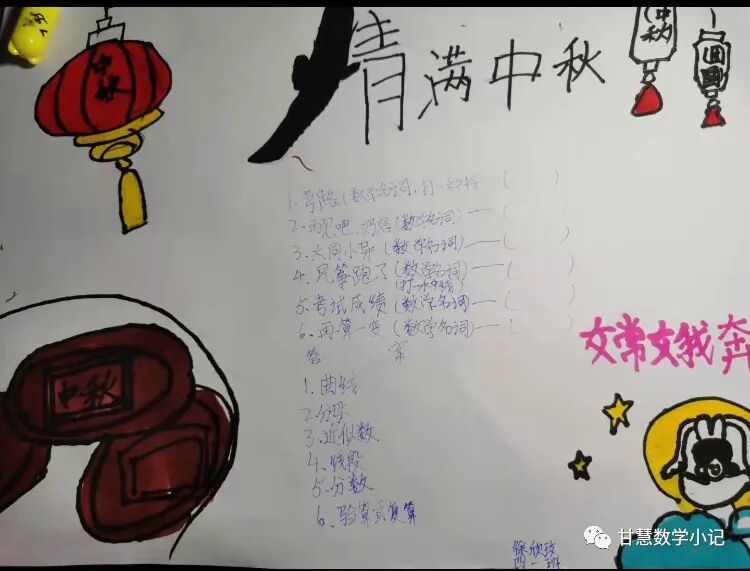 中秋
情满中秋
中秋
团圆
1、弯路(数学名词,打一种线)—( )
2、再见吧,妈妈(数学名词)—( )
3、大同小异(数学名词)—( )
4、风筝跑了(数学名词)—( )
(打一水中线)
5、考试成绩(数学名词)—( )
6、再算一变(数学名词)—( )
答 案
1、曲线
2、分母
3、近似数
4、线段
5、分数
6、验算或复算
中秋
女常女我奔
徐欣玫
四一班
甘慧数学小记